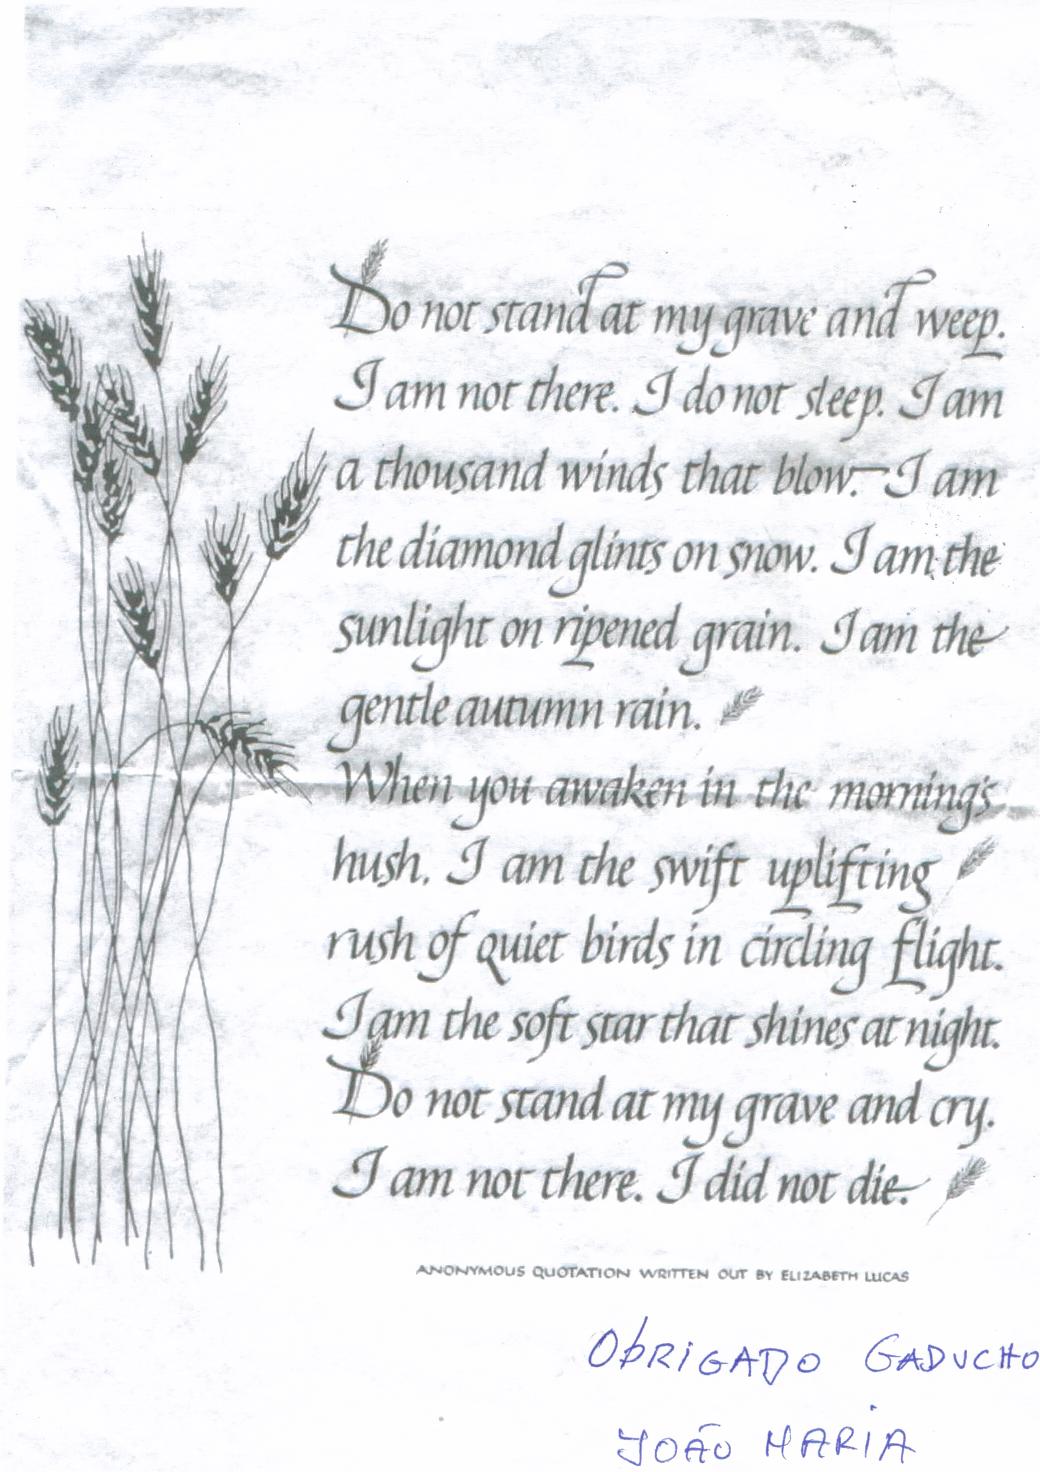 Do not stand at my grave and weep.
I am not there. I do not sleep. I am
a thousand winds that blow. I am
the diamond glints on snow. I am the
sunlight on ripened grain. I am the
gentle autumn rain.
When you awaken in the morning's
hush. I am the swift uplifting
rush of quiet birds in circling flight.
I am the soft star that shines at night.
Do not stand at my grave and cry.
I am not there. I did not die.
ANONYMOUS QUOTATION WRITTEN OUT BY ELIZABETH LUCAS
OBRIGADO GADUCHO
JOÃO MARIA